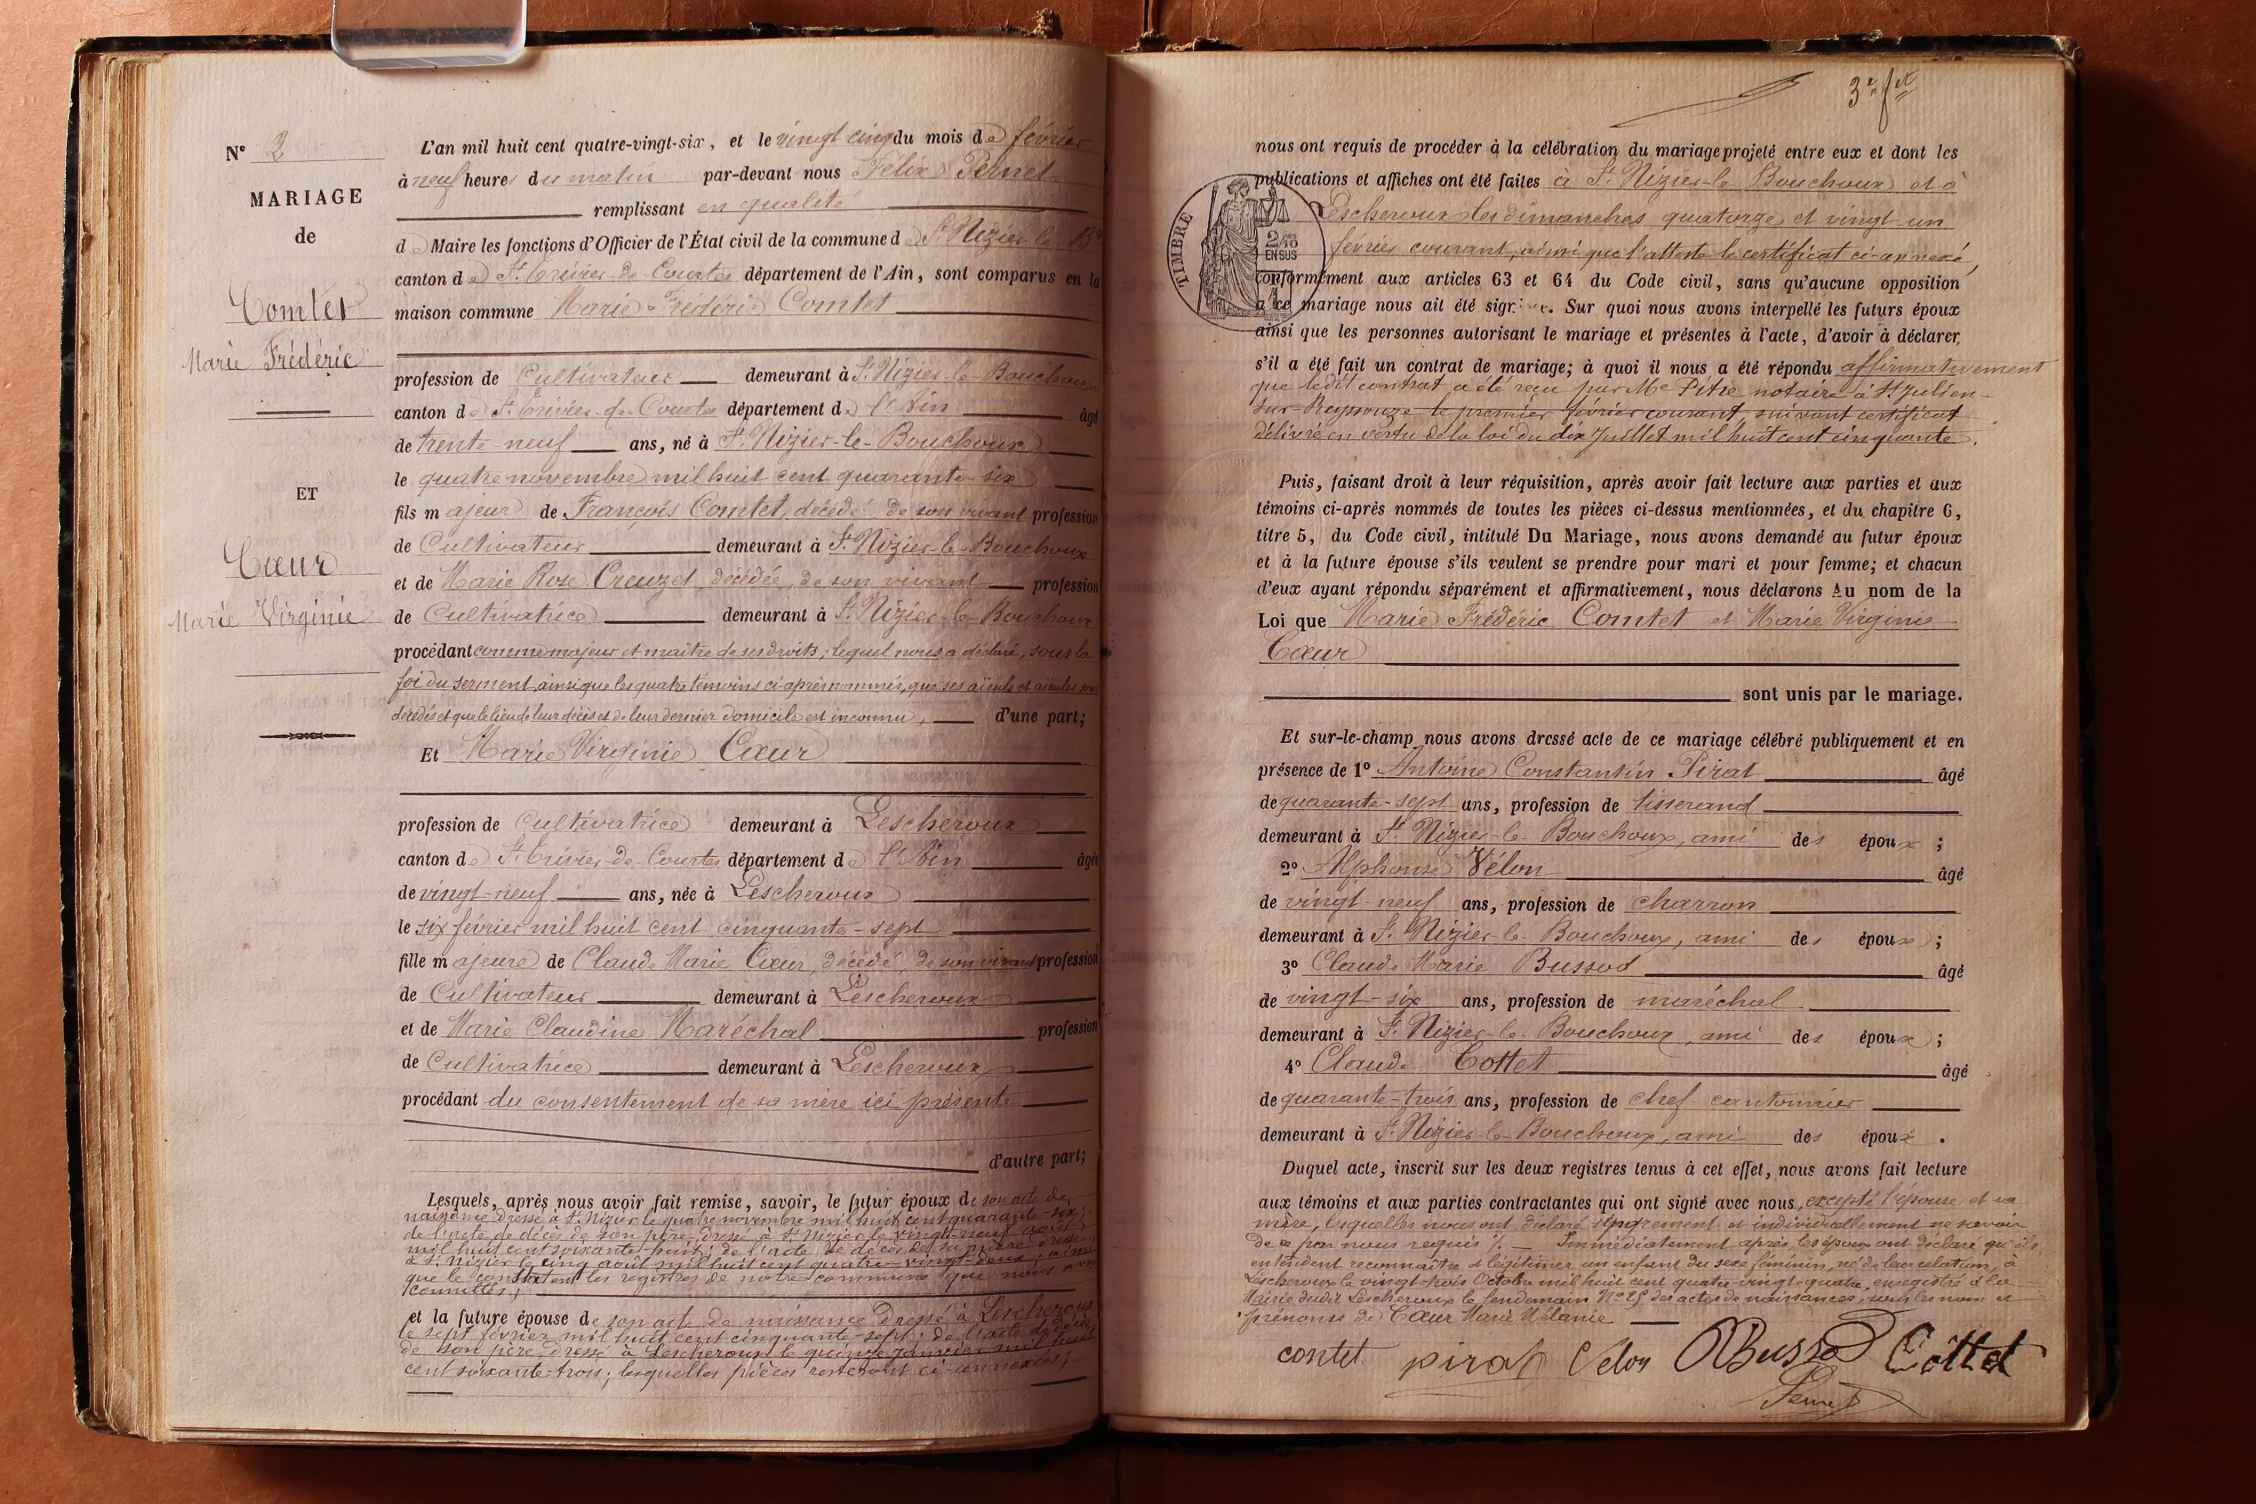 N° 2
MARIAGE
de
Comtet
Marie Frédéric
ET
Cœur
Marie Virginie
L'an mil huit cent quatre-vingt-six, et le vingt cinq du mois de février
à neuf heures du matin par-devant nous Félix Pernet
remplissant en qualité
de Maire les fonctions d'Officier de l'État civil de la commune de St Nizier-le-Bx
canton de St Trivier-de-Courtes département de l'Ain, sont comparus en la
maison commune Marie Frédéric Comtet
profession de Cultivateur demeurant à St Nizier-le-Bouchoux
canton de St Trivier-de-Courtes département de l'Ain âgé
de trente-neuf ans, né à St Nizier-le-Bouchoux
le quatre novembre mil huit cent quarante-six
fils majeur de François Comtet, décédé de son vivant profession
de Cultivateur demeurant à St Nizier-le-Bouchoux
et de Marie Rose Creuzet, décédée, de son vivant profession
de Cultivatrice demeurant à St Nizier-le-Bouchoux
procédant comme majeur et maître de ses droits; lequel nous a déclaré, sous la
foi du serment, ainsi que les quatre témoins ci-après nommés, que ses aïeuls et aïeules sont
décédés et que le lieu de leur décès et de leur dernier domicile est inconnu, d'une part;
Et Marie Virginie Cœur
profession de Cultivatrice demeurant à Lescheroux
canton de St Trivier-de-Courtes département de l'Ain âgée
de vingt-neuf ans, née à Lescheroux
le six février mil huit cent cinquante-sept
fille majeure de Claude Marie Cœur, décédé de son vivant profession
de Cultivateur demeurant à Lescheroux
et de Marie Claudine Maréchal profession
de Cultivatrice demeurant à Lescheroux
procédant du consentement de sa mère ici présente
d'autre part;
Lesquels, après nous avoir fait remise, savoir, le futur époux de son acte de
naissance dressé à St Nizier le quatre novembre mil huit cent quarante-six;
de l'acte de décès de son père, dressé à St Nizier le vingt-neuf août
mil huit cent soixante-huit; de l'acte de décès de sa mère dressé
à St Nizier le cinq août mil huit cent quatre-vingt-deux; ainsi
que le constatent les registres de notre commune que nous avons
compulsés;
et la future épouse de son acte de naissance dressé à Lescheroux
le sept février mil huit cent cinquante-sept; de l'acte de décès
de son père dressé à Lescheroux le quinze janvier mil huit
cent soixante-trois; lesquelles pièces resteront ci-annexées;
3e fet
TIMBRE
2/10 EN SUS
nous ont requis de procéder à la célébration du mariage projeté entre eux et dont les
publications et affiches ont été faites à St Nizier-le-Bouchoux et à
Lescheroux les dimanches quatorze et vingt-un
février courant, ainsi que l'atteste le certificat ci-annexé,
conformément aux articles 63 et 64 du Code civil, sans qu'aucune opposition
à ce mariage nous ait été signifiée. Sur quoi nous avons interpellé les futurs époux
ainsi que les personnes autorisant le mariage et présentes à l'acte, d'avoir à déclarer
s'il a été fait un contrat de mariage; à quoi il nous a été répondu affirmativement
que ledit contrat a été reçu par Me Pitre notaire à St Julien-
sur-Reyssouze le premier février courant, suivant certificat
délivré en vertu de la loi du dix juillet mil huit cent cinquante.
Puis, faisant droit à leur réquisition, après avoir fait lecture aux parties et aux
témoins ci-après nommés de toutes les pièces ci-dessus mentionnées, et du chapitre 6,
titre 5, du Code civil, intitulé Du Mariage, nous avons demandé au futur époux
et à la future épouse s'ils veulent se prendre pour mari et pour femme; et chacun
d'eux ayant répondu séparément et affirmativement, nous déclarons Au nom de la
Loi que Marie Frédéric Comtet et Marie Virginie
Cœur
sont unis par le mariage.
Et sur-le-champ nous avons dressé acte de ce mariage célébré publiquement et en
présence de 1° Antoine Constantin Pirat âgé
de quarante-sept ans, profession de tisserand
demeurant à St Nizier-le-Bouchoux, ami des époux;
2° Alphonse Vélon âgé
de vingt-neuf ans, profession de charron
demeurant à St Nizier-le-Bouchoux, ami des époux;
3° Claude Marie Bussod âgé
de vingt-six ans, profession de maréchal
demeurant à St Nizier-le-Bouchoux, ami des époux;
4° Claude Cottet âgé
de quarante-trois ans, profession de chef cantonnier
demeurant à St Nizier-le-Bouchoux, ami des époux.
Duquel acte, inscrit sur les deux registres tenus à cet effet, nous avons fait lecture
aux témoins et aux parties contractantes qui ont signé avec nous, excepté l'épouse et sa
mère, lesquelles nous ont déclaré séparément et individuellement ne savoir
de ce par nous requis ./. Immédiatement après, les époux ont déclaré qu'ils
entendent reconnaître & légitimer un enfant du sexe féminin, né de leur relation, à
Lescheroux le vingt-trois Octobre mil huit cent quatre-vingt-quatre, enregistré à la
Mairie dudit Lescheroux le lendemain No 25 des actes de naissances, sous les nom et
prénoms de Cœur Marie Mélanie
contet pirat Velon Bussod Cottet
Pernet